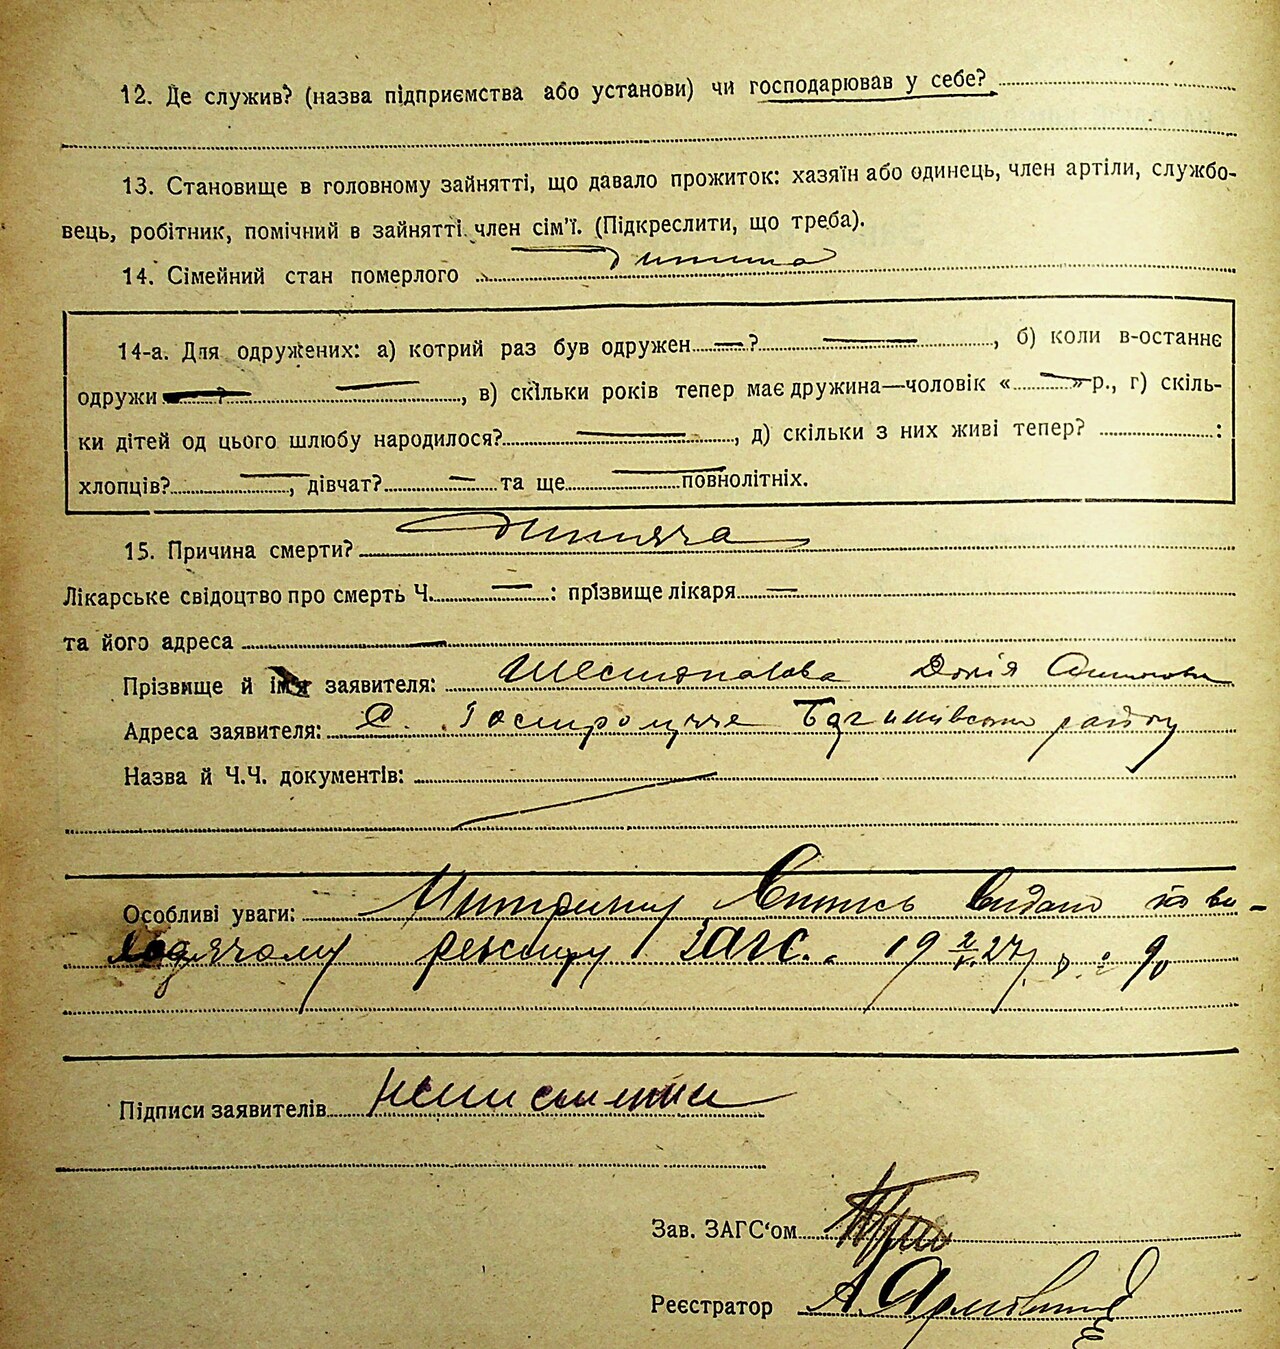 12. Де служив? (назва підприємства або установи) чи господарював у себе?
13. Становище в головному зайнятті, що давало прожиток: хазяїн або одинець, член артіли, службо-
вець, робітник, помічний в зайнятті член сім'ї. (Підкреслити, що треба).
14. Сімейний стан померлого дитина
14-а. Для одружених: а) котрий раз був одружен — ? —, б) коли в-останнє
одружи — ? —, в) скільки років тепер має дружина—чоловік « — » р., г) скіль-
ки дітей од цього шлюбу народилося? —, д) скільки з них живі тепер? :
хлопців? —, дівчат? — та ще — повнолітніх.
15. Причина смерти? дитяча
Лікарське свідоцтво про смерть Ч. — : прізвище лікаря —
та його адреса —
Прізвище й ім'я заявителя: Шестопалова Докія
Адреса заявителя: С. району
Назва й Ч.Ч. документів:
Особливі уваги: Метричну Випись видано по ви-
ходячому реєстру ЗАГС. 19 27 р. 90
Підписи заявителів неписьменна
Зав. ЗАГС'ом
Реєстратор А.